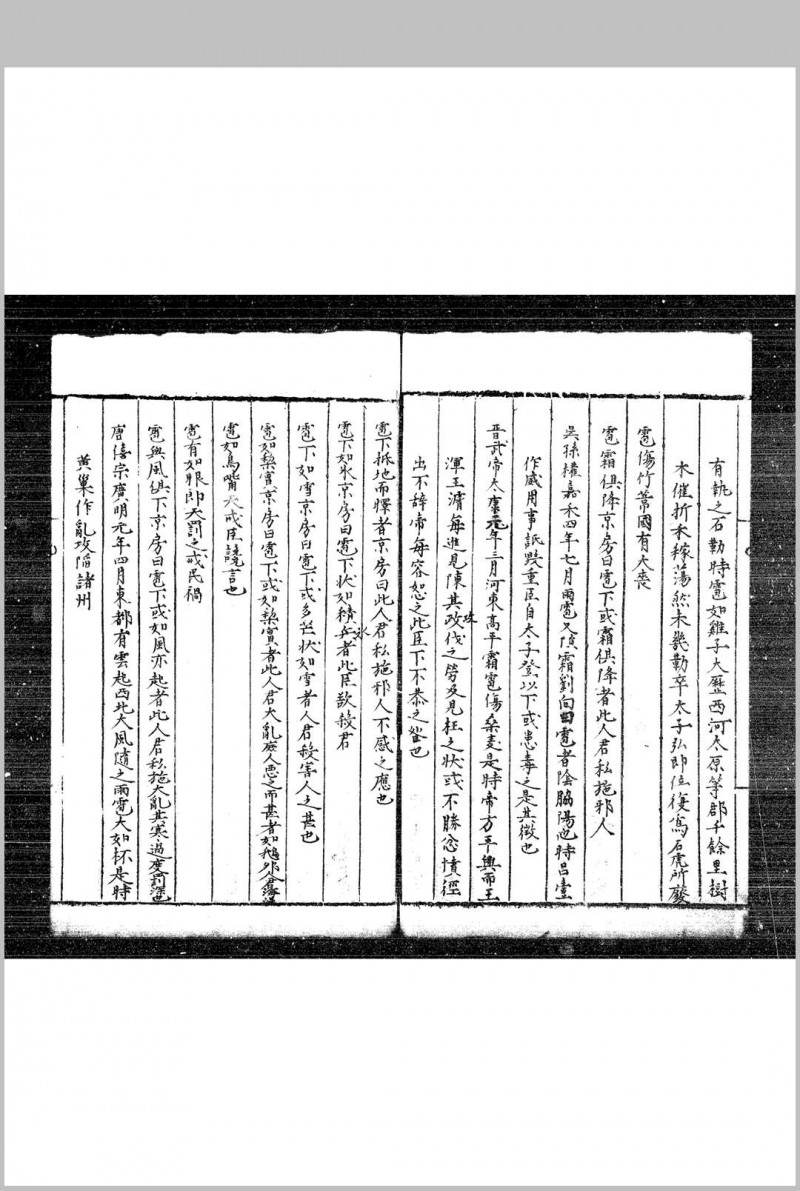 有執之石勒時雹如雞子大歷西河太原等郡千餘里樹
木催折禾稼蕩然未幾勒卒太子弘即位復為石虎所廢
雹傷竹䓫國有大喪
雹霜俱降京房曰雹下或霜俱降者此人君私施邪人
吳孫權嘉禾四年七月雨雹又隕霜劉向曰雹者陰脇陽也時呂壹
作威用事詆毀重臣自太子登以下或患毒之是其徵也
晋武帝太康元年三月河東高平霜雹傷桑麦是時帝方平吳而王
渾王濬每進見陳其攻伐之勞及見枉之狀或不勝忿憤徑
出不辞帝每容恕之此臣下不恭之𥁞也
雹下抵地而釋者京房曰此人君私施邪人不感之應也
雹下如氷京房曰雹下狀如積氷者此臣欲殺君
雹下如雪京房曰雹下或多芒狀如雪者人君殺害人之甚也
雹如棃實京房曰雹下或如棃實者此人君大亂庶人惡之而甚者如鵝卵
雹如鳥觜天戒臣譊言也
雹有如眼即天罰之戒民禍
雹與風俱下京房曰雹下或如風亦起者此人君私施大亂其寒過度罰深也
唐僖宗廣明元年四月東都有雲起西北大風隨之雨雹大如杯是時
黄巢作亂攻陷諸州